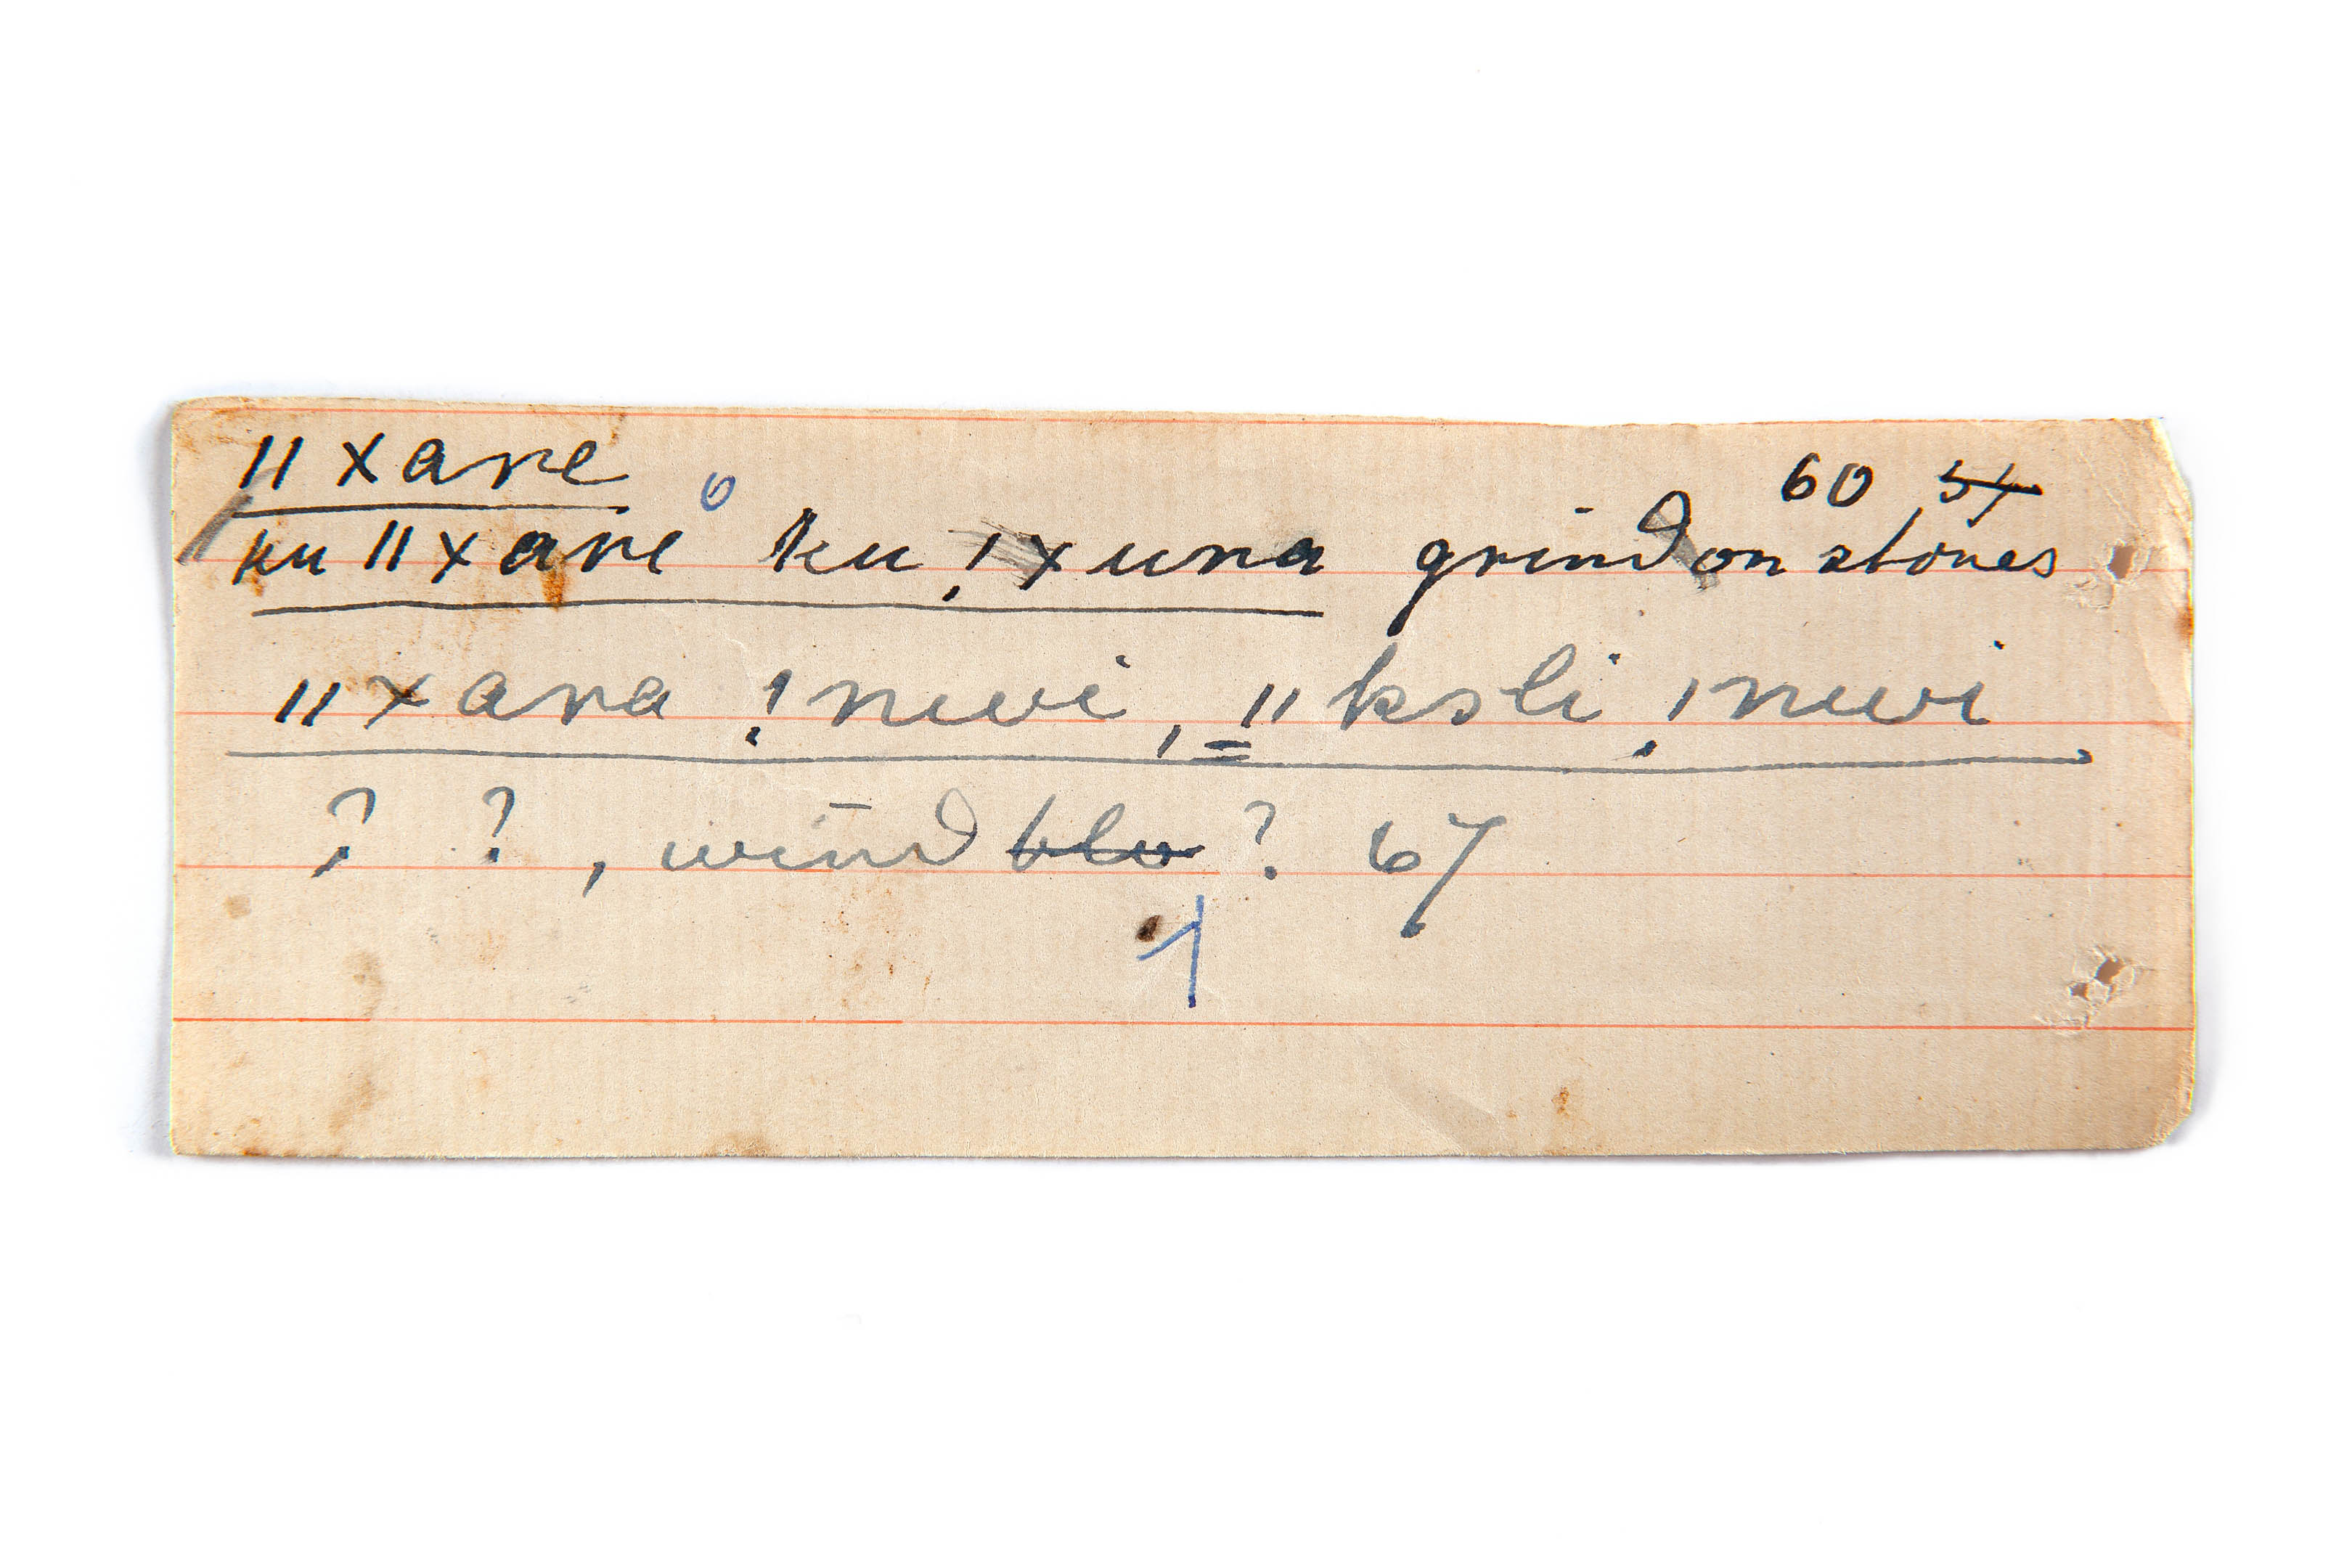 ǁ xare
60 54
ku ǁ xare ku ! xuna grind on stones
ǁ xara ! nwi, = ǁ ksli ! nwi
? ? , wind blo ? 67
1